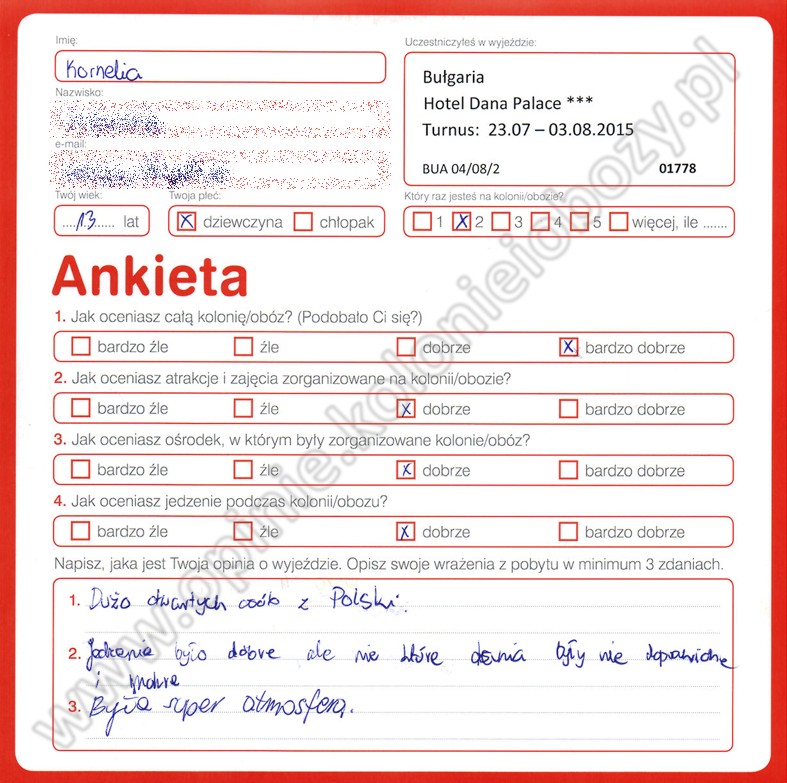 Imię:
Kornelia
Nazwisko:
e-mail:
Twój wiek:
....13...... lat
Twoja płeć:
X dziewczyna chłopak
Uczestniczyłeś w wyjeździe:
Bułgaria
Hotel Dana Palace ***
Turnus: 23.07 – 03.08.2015
BUA 04/08/2 01778
Który raz jesteś na kolonii/obozie?
1 X 2 3 4 5 więcej, ile .......
Ankieta
1. Jak oceniasz całą kolonię/obóz? (Podobało Ci się?)
bardzo źle źle dobrze X bardzo dobrze
2. Jak oceniasz atrakcje i zajęcia zorganizowane na kolonii/obozie?
bardzo źle źle X dobrze bardzo dobrze
3. Jak oceniasz ośrodek, w którym były zorganizowane kolonie/obóz?
bardzo źle źle X dobrze bardzo dobrze
4. Jak oceniasz jedzenie podczas kolonii/obozu?
bardzo źle źle X dobrze bardzo dobrze
Napisz, jaka jest Twoja opinia o wyjeździe. Opisz swoje wrażenia z pobytu w minimum 3 zdaniach.
1. Dużo otwartych osób z Polski.
2. Jedzenie było dobre ale nie które dania były nie doprawione
i
3. Była super atmosfera.
www.opinie.kolonieiobozy.pl